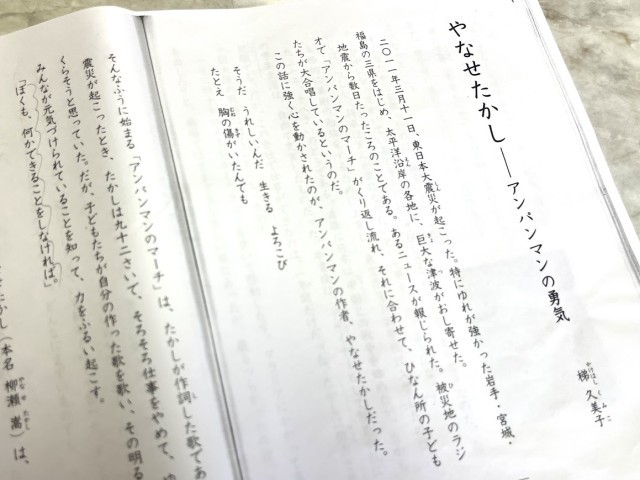 やなせたかし――アンパンマンの勇気
梯 久美子
二〇一一年三月十一日、東日本大震災が起こった。特にゆれが強かった岩手・宮城・
福島の三県をはじめ、太平洋沿岸の各地に、巨大な津波がおし寄せた。
地震から数日たったころのことである。あるニュースが報じられた。被災地のラジ
オで「アンパンマンのマーチ」がくり返し流れ、それに合わせて、ひなん所の子ども
たちが大合唱しているというのだ。
この話に強く心を動かされたのが、アンパンマンの作者、やなせたかしだった。
そうだ うれしいんだ 生きる よろこび
たとえ 胸の傷がいたんでも
そんなふうに始まる「アンパンマンのマーチ」は、たかしが作詞した歌であ
震災が起こったとき、たかしは九十二さいで、そろそろ仕事をやめて、ゆ
くらそうと思っていた。だが、子どもたちが自分の作った歌を歌い、その明る
みんなが元気づけられていることを知って、力をふるい起こす。
「ぼくも、何かできることをしなければ。」
たかし（本名 柳瀬 嵩）は、